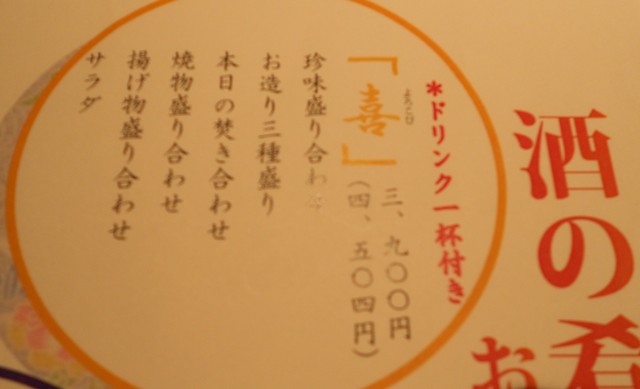 酒の肴
お
*ドリンク一杯付き
「喜」
よろこび
三、九〇〇円
(四、五〇四円)
珍味盛り合わせ
お造り三種盛り
本日の焚き合わせ
焼物盛り合わせ
揚げ物盛り合わせ
サラダ